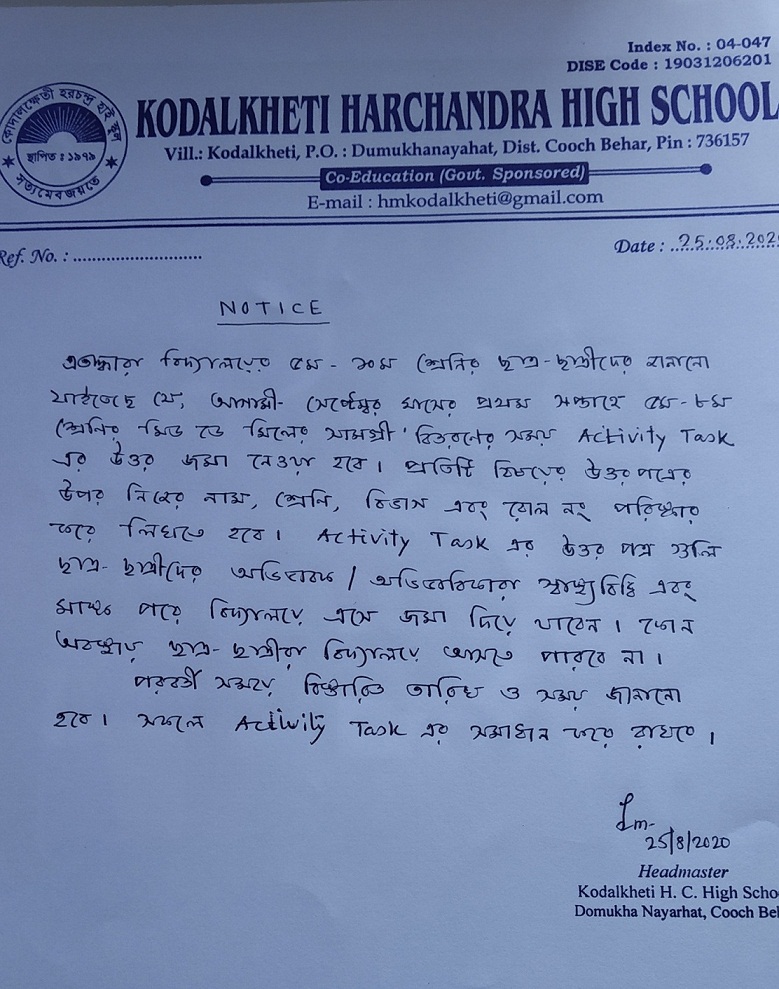 Index No. : 04-047
DISE Code : 19031206201
কোদালক্ষেতী হরচন্দ্র হাই স্কুল
স্থাপিত : ১৯৭৯
সত্যমেব জয়তে
KODALKHETI HARCHANDRA HIGH SCHOOL
Vill.: Kodalkheti, P.O. : Dumukhanayahat, Dist. Cooch Behar, Pin : 736157
Co-Education (Govt. Sponsored)
E-mail : hmkodalkheti@gmail.com
Ref. No. : ............................
Date : ..25.08.202
NOTICE
এতদ্বারা বিদ্যালয়ের ৫ম - ১০ম শ্রেনির ছাত্র-ছাত্রীদের জানানো
যাইতেছে যে, আগামী- সেপ্টেম্বর মাসের প্রথম সপ্তাহে ৫ম-৮ম
শ্রেনির মিড ডে মিলের সামগ্রী বিতরনের সময় Activity Task
এর উত্তর জমা নেওয়া হবে। প্রতিটি বিষয়ের উত্তর পত্রের
উপর নিজের নাম, শ্রেনি, বিভাগ এবং রোল নং পরিষ্কার
করে লিখতে হবে। Activity Task এর উত্তর পত্র গুলি
ছাত্র-ছাত্রীদের অভিভাবক / অভিভাবিকারা স্বাস্থ্যবিধি এবং
মাস্ক পরে বিদ্যালয়ে এসে জমা দিয়ে যাবেন। কোন
অবস্থায় ছাত্র-ছাত্রীরা বিদ্যালয়ে আসতে পারবে না।
পরবর্তী সময়ে বিস্তারিত তারিখ ও সময় জানানো
হবে। সকলে Activity Task এর সমাধান করে রাখবে।
25/8/2020
Headmaster
Kodalkheti H. C. High Scho
Domukha Nayarhat, Cooch Beh